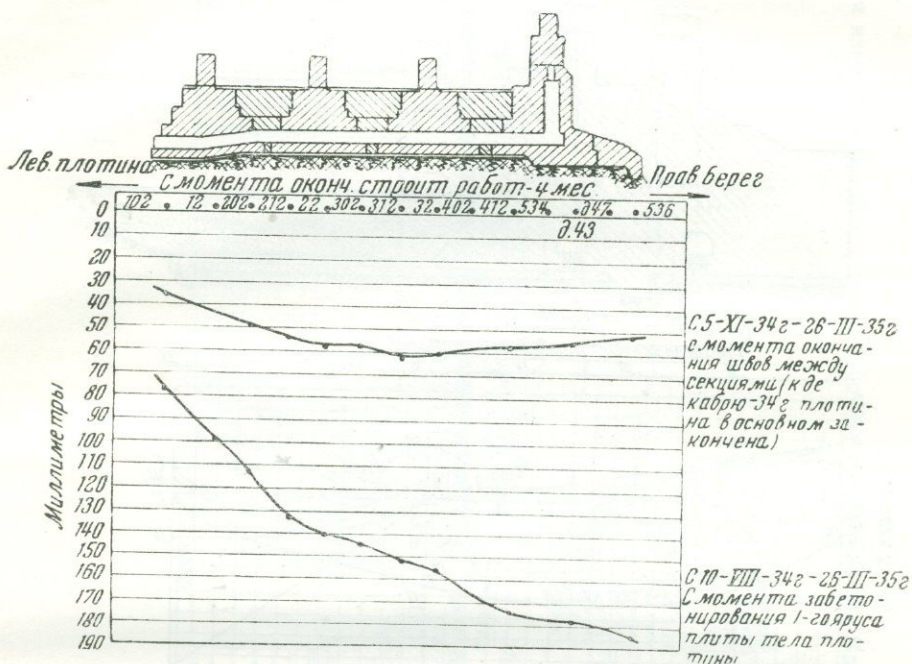 Лев. плотина
Прав берег
С момента оконч. строит работ-4 мес.
102 12 202 212 22 302 312 32 402 412 534 д47 536
д.43
0
10
20
30
40
50
60
70
80
90
100
110
120
130
140
150
160
170
180
190
Миллиметры
С 5-XI-34г-26-III-35г
с момента оконча-
ния швов между
секциями (к де
кабрю-34г плоти-
на в основном за-
кончена)
С 10-VIII-34г-26-III-35г
С момента забето-
нирования 1-го яруса
плиты тела пло-
тины